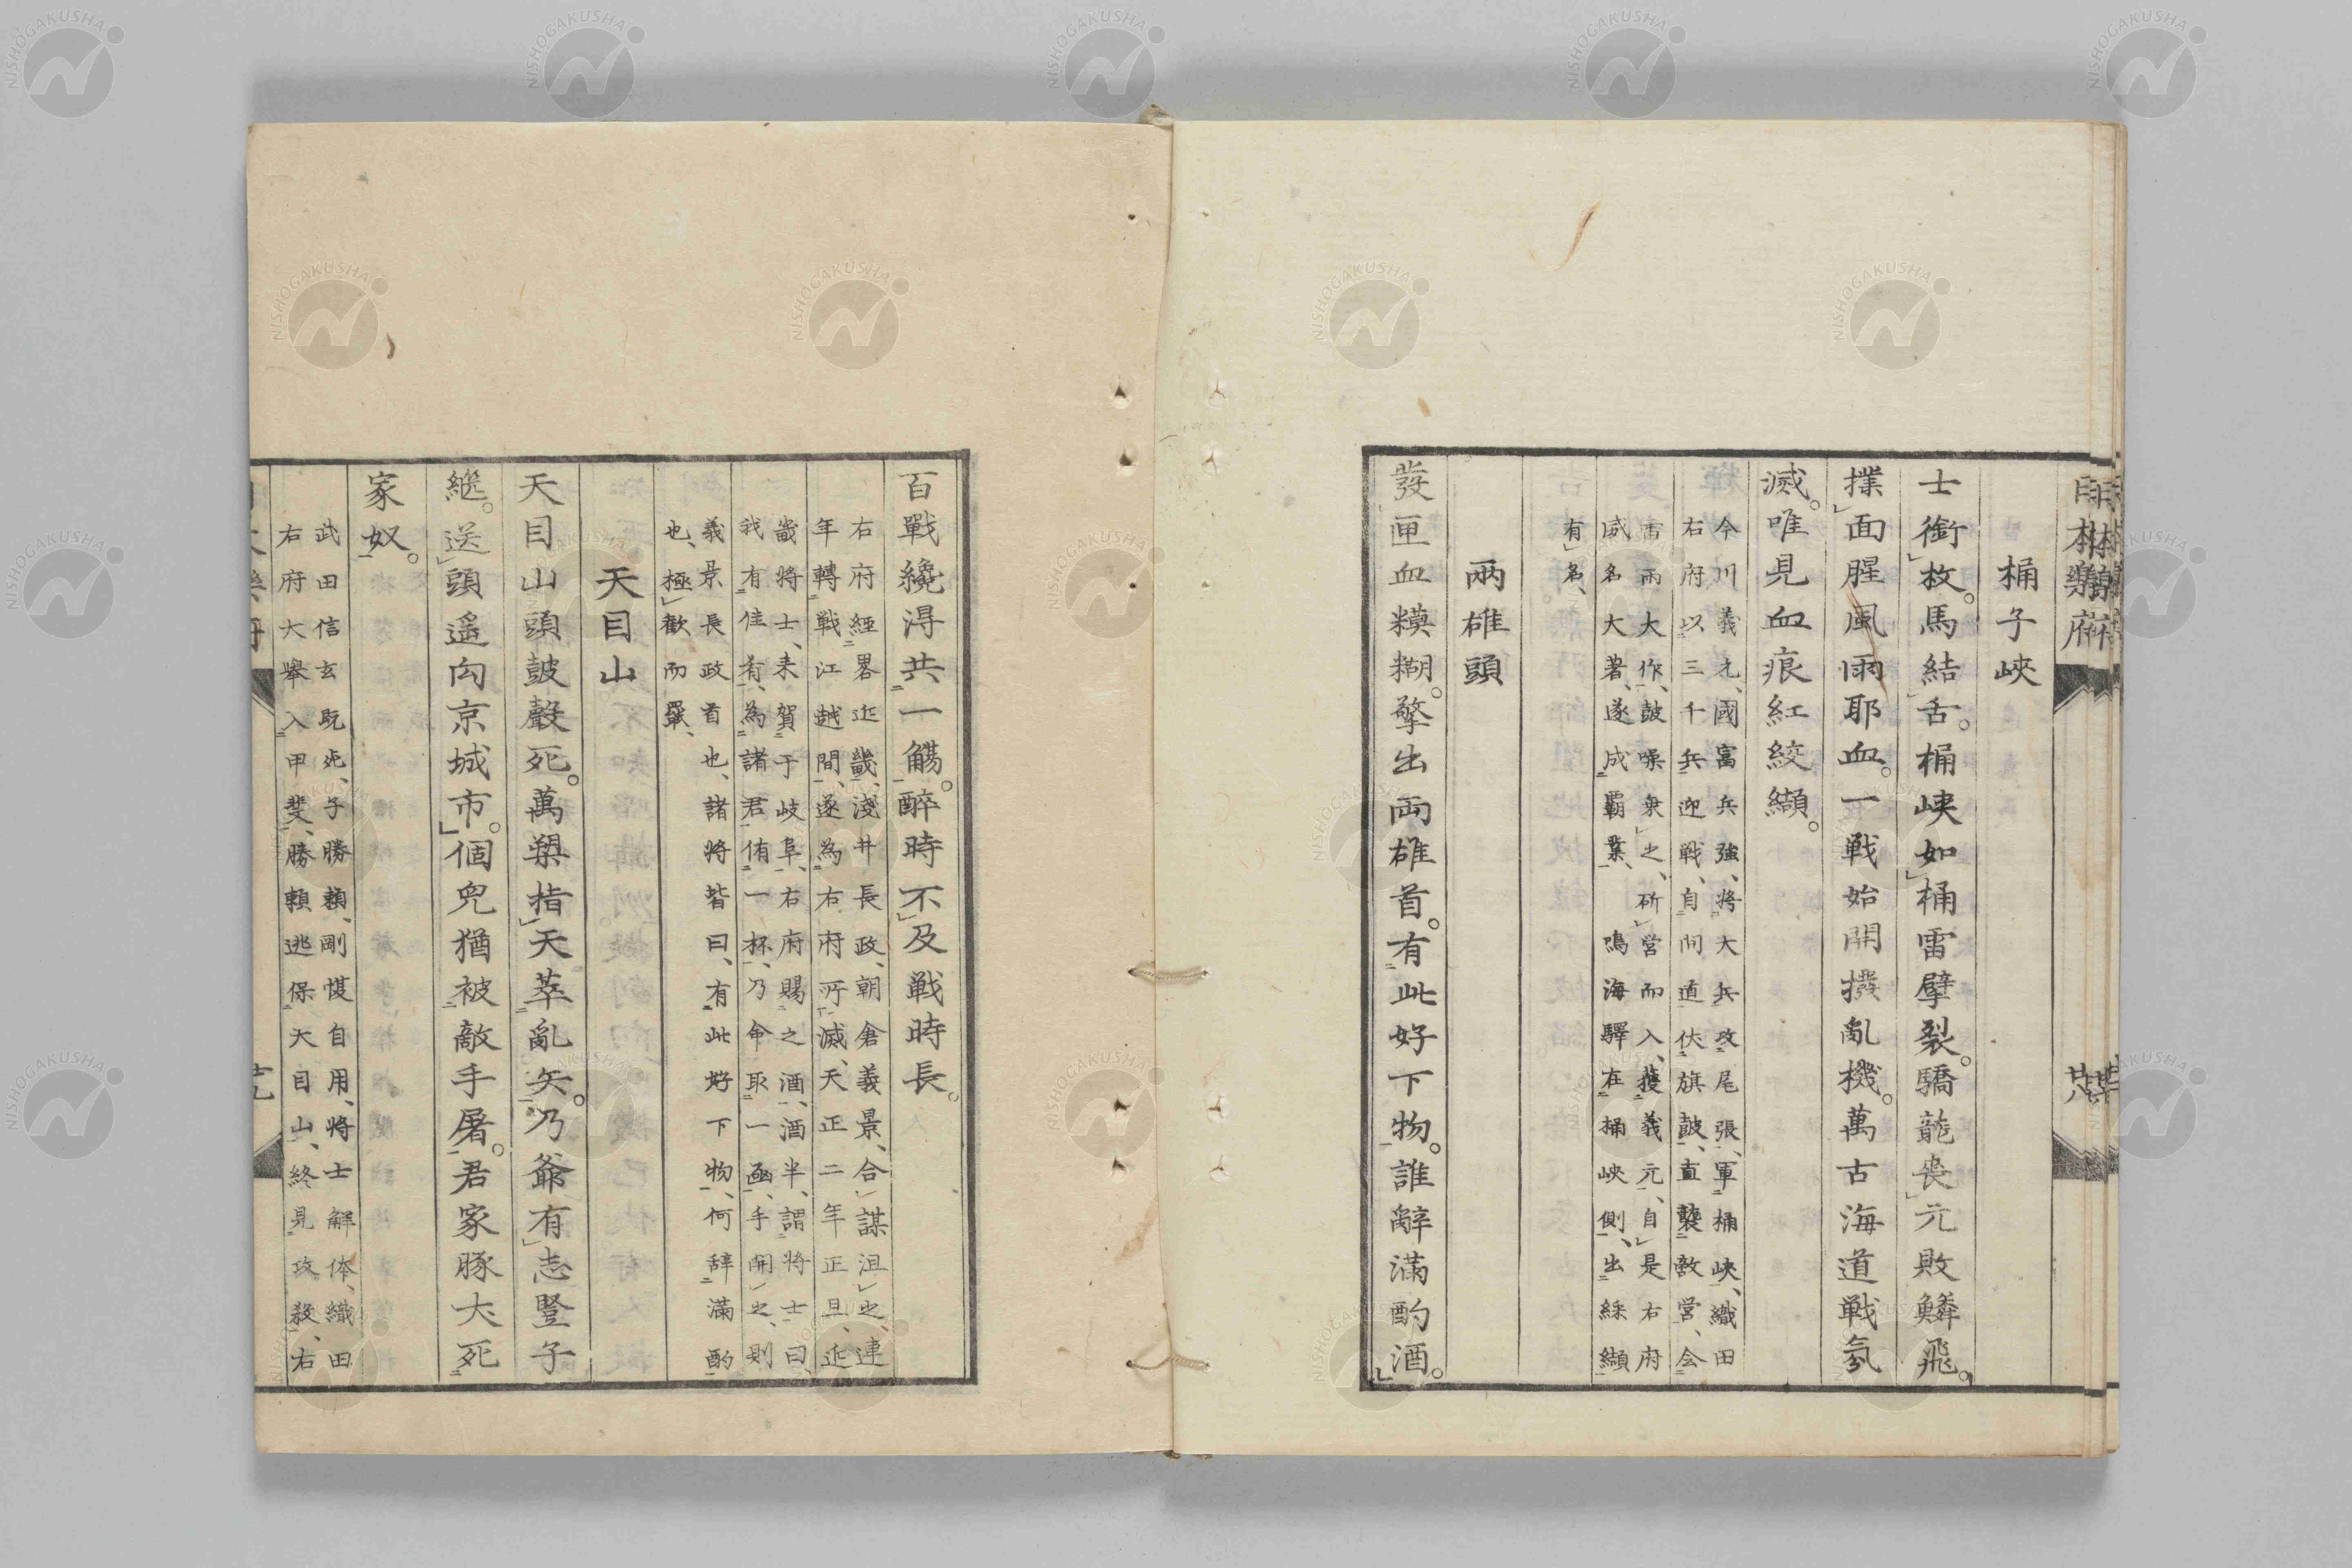 日本樂府
桶子峽
士銜枚。馬結舌。桶峽如桶雷擘裂。驕龍喪元敗鱗飛。
撲面腥風雨耶血。一戦始開撥亂機。萬古海道戦氛
滅。唯見血痕紅絞纈。
今川義元、國富兵強、将大兵攻尾張、軍桶峽、織田
右府以三千兵迎戦、自间道伏旗皷、直襲敵营、会
雷雨大作、皷噪乗之、斫营而入、獲義元、自是右府
威名大著、遂成霸業、鳴海驛在桶峽側、出綵纈
有名、
兩雄頭
發匣血糢糊。擎出両雄首。有此好下物。誰辭滿酌酒。
百戰纔得共一觴。醉時不及戦時長。
右府經畧近畿、淺井長政、朝倉義景、合謀沮之、連
年轉戦江越間、遂為右府所滅、天正二年正旦、近
畿将士、来賀于岐阜、右府賜之酒、酒半、謂将士曰、
我有佳肴、為諸君侑一杯、乃命取一函、手開之、則
義景長政首也、諸将皆曰、有此好下物、何辞滿酌
也、極歡而罷、
天目山
天目山頭皷聲死。萬槊指天萃亂矢。乃爺有志豎子
繼。送頭遥向京城市。個兒猶被敵手屠。君家豚犬死
家奴。
武田信玄既死、子勝頼、剛愎自用、将士解体、織田
右府大舉入甲斐、勝頼逃保天目山、終見攻殺、右
NISHOGAKUSHA